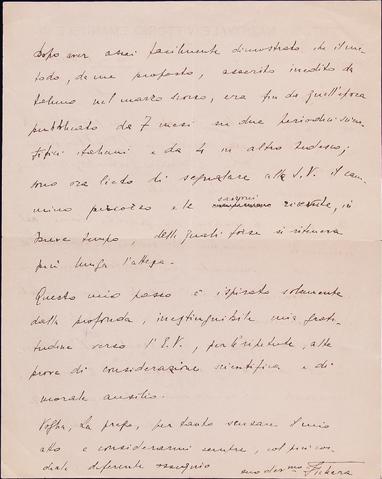 Dopo aver assai facilmente dimostrato che il me-
todo, da me proposto, asserito inedito da
taluno nel marzo scorso, era fin da quell'epoca
pubblicato da 7 mesi su due periodici scien-
tifici italiani e da 4 in altro tedesco;
sono ora lieto di segnalare alla S.V. il cam-
mino percorso e le sanzioni ricevute, in
breve tempo, delle quali forse si riteneva
più lunga l'attesa.
Questo mio passo è ispirato solamente
dalla profonda, inestinguibile mia grati-
tudine verso l'E.V., per le ripetute, alte
prove di considerazione scientifica e di
morale ausilio.
Voglia, La prego, pertanto scusare il mio
atto e considerarmi sempre, col più cor-
diale deferente ossequio
suo dev.mo Fichera